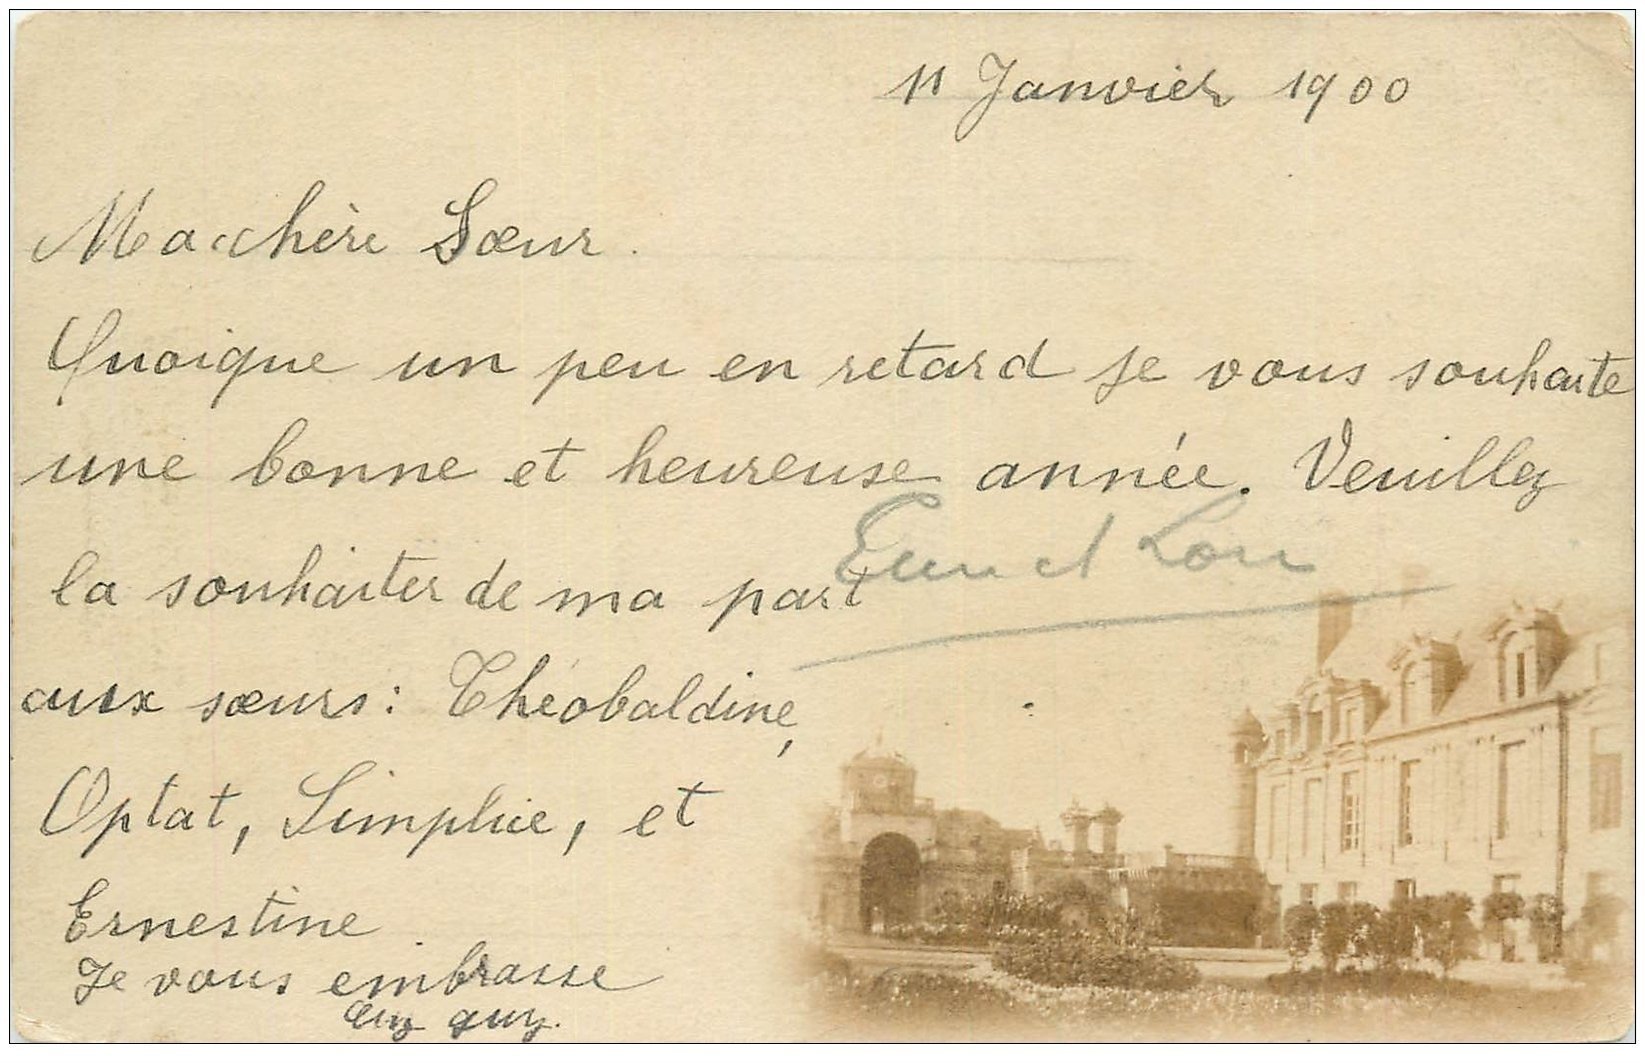 11 Janvier 1900
Ma chère Sœur.
Quoique un peu en retard je vous souhaite
une bonne et heureuse année. Veuillez
la souhaiter de ma part
aux sœurs: Théobaldine,
Optat, Simplice, et
Ernestine
Je vous embrasse